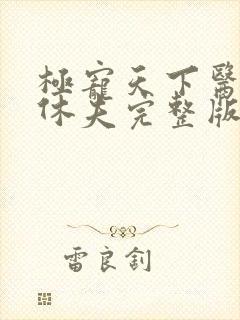 極寵天下醫
休夫完整版
雷良釗